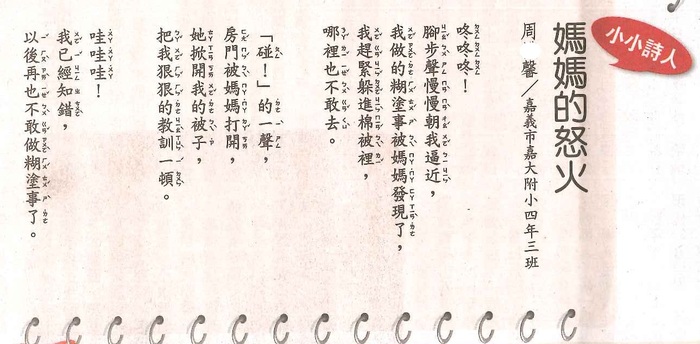 小小詩人
媽媽的怒火
周 馨／嘉義市嘉大附小四年三班
咚咚咚！
腳步聲慢慢朝我逼近，
我做的糊塗事被媽媽發現了，
我趕緊躲進棉被裡，
哪裡也不敢去。
「碰！」的一聲，
房門被媽媽打開，
她掀開我的被子，
把我狠狠的教訓一頓。
哇哇哇！
我已經知錯，
以後再也不敢做糊塗事了。